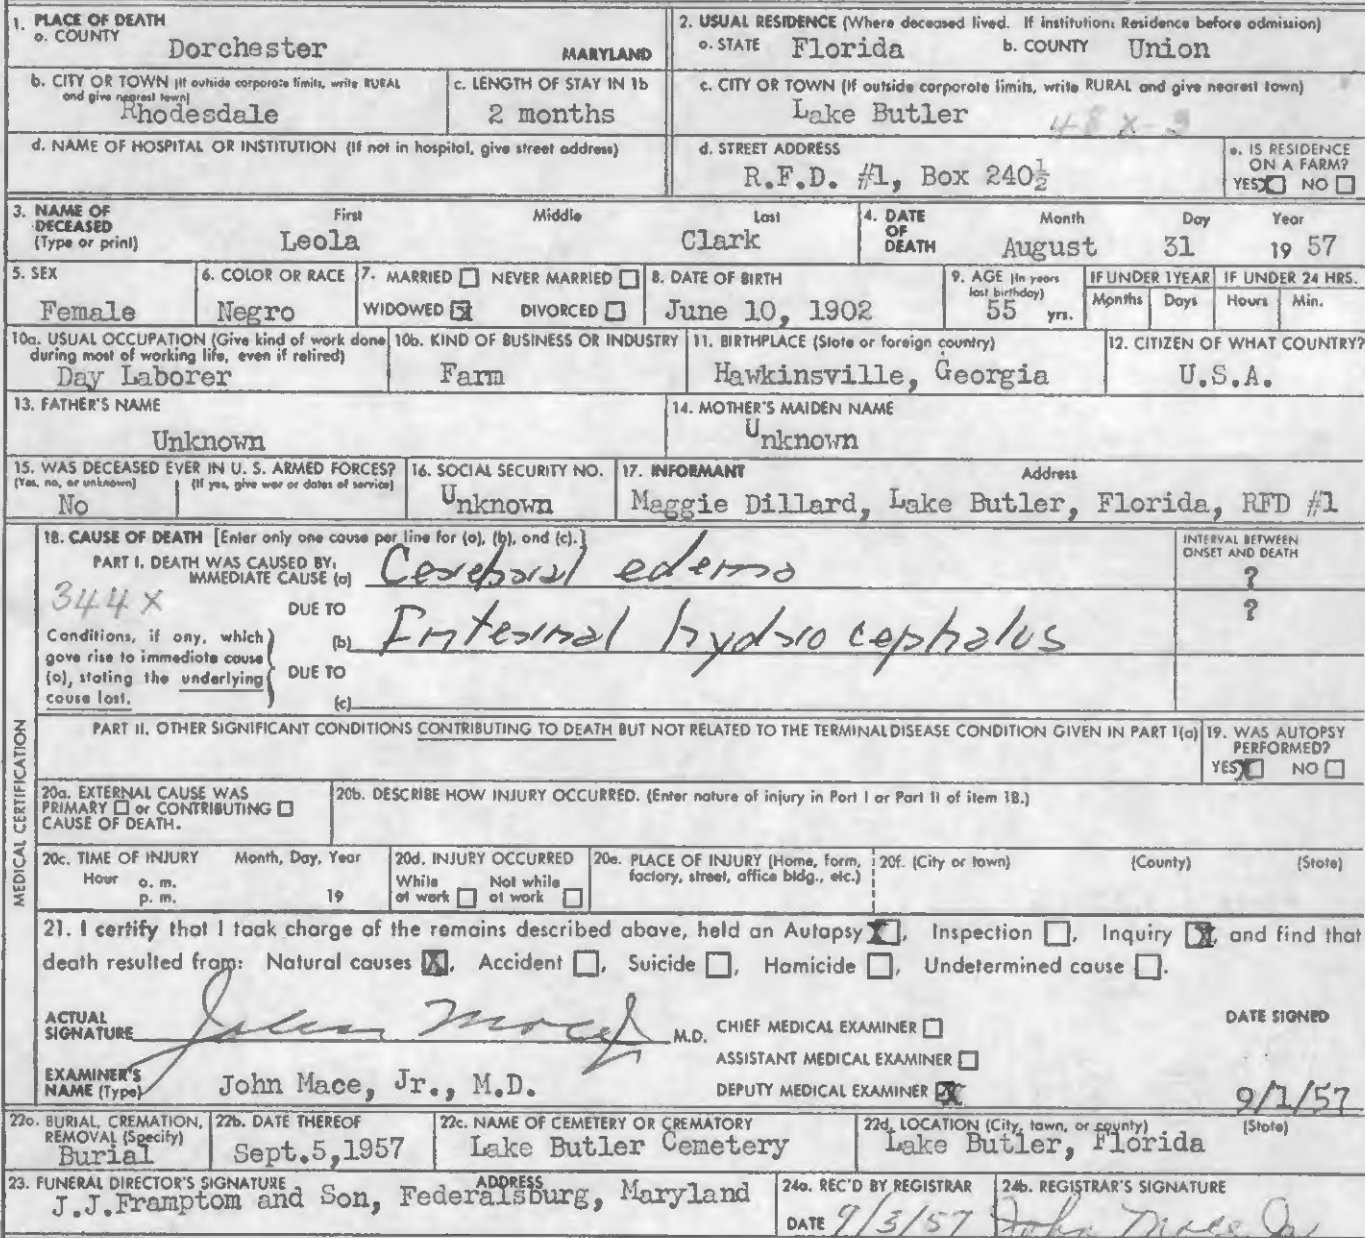 1. PLACE OF DEATH
a. COUNTY Dorchester MARYLAND
2. USUAL RESIDENCE (Where deceased lived. If institution: Residence before admission)
a. STATE Florida b. COUNTY Union
b. CITY OR TOWN (If outside corporate limits, write RURAL and give nearest town)
Rhodesdale
c. LENGTH OF STAY IN 1b
2 months
c. CITY OR TOWN (If outside corporate limits, write RURAL and give nearest town)
Lake Butler
48X-3
d. NAME OF HOSPITAL OR INSTITUTION (If not in hospital, give street address)
d. STREET ADDRESS
R.F.D. #1, Box 240½
e. IS RESIDENCE ON A FARM?
YES X NO
3. NAME OF DECEASED (Type or print)
First Middle Last
Leola Clark
4. DATE OF DEATH
Month Day Year
August 31 19 57
5. SEX
Female
6. COLOR OR RACE
Negro
7. MARRIED NEVER MARRIED
WIDOWED X DIVORCED
8. DATE OF BIRTH
June 10, 1902
9. AGE (In years last birthday)
55 yrs.
IF UNDER 1 YEAR
Months Days
IF UNDER 24 HRS.
Hours Min.
10a. USUAL OCCUPATION (Give kind of work done during most of working life, even if retired)
Day Laborer
10b. KIND OF BUSINESS OR INDUSTRY
Farm
11. BIRTHPLACE (State or foreign country)
Hawkinsville, Georgia
12. CITIZEN OF WHAT COUNTRY?
U.S.A.
13. FATHER'S NAME
Unknown
14. MOTHER'S MAIDEN NAME
Unknown
15. WAS DECEASED EVER IN U. S. ARMED FORCES?
(Yes, no, or unknown) (If yes, give war or dates of service)
No
16. SOCIAL SECURITY NO.
Unknown
17. INFORMANT Address
Maggie Dillard, Lake Butler, Florida, RFD #1
MEDICAL CERTIFICATION
18. CAUSE OF DEATH [Enter only one cause per line for (a), (b), and (c).]
INTERVAL BETWEEN ONSET AND DEATH
PART I. DEATH WAS CAUSED BY:
IMMEDIATE CAUSE (a) Cerebral edema ?
344X
DUE TO ?
Conditions, if any, which gave rise to immediate cause (a), stating the underlying cause last.
(b) Internal hydrocephalus
DUE TO
(c)
PART II. OTHER SIGNIFICANT CONDITIONS CONTRIBUTING TO DEATH BUT NOT RELATED TO THE TERMINAL DISEASE CONDITION GIVEN IN PART I(a)
19. WAS AUTOPSY PERFORMED?
YES X NO
20a. EXTERNAL CAUSE WAS
PRIMARY or CONTRIBUTING
CAUSE OF DEATH.
20b. DESCRIBE HOW INJURY OCCURRED. (Enter nature of injury in Part I or Part II of item 18.)
20c. TIME OF INJURY Month, Day, Year
Hour a. m.
p. m. 19
20d. INJURY OCCURRED
While at work Not while at work
20e. PLACE OF INJURY (Home, farm, factory, street, office bldg., etc.)
20f. (City or town) (County) (State)
21. I certify that I took charge of the remains described above, held an Autopsy X, Inspection , Inquiry X, and find that
death resulted from: Natural causes X, Accident , Suicide , Homicide , Undetermined cause .
ACTUAL SIGNATURE John Mace Jr M.D.
CHIEF MEDICAL EXAMINER
ASSISTANT MEDICAL EXAMINER
DEPUTY MEDICAL EXAMINER X
DATE SIGNED
9/1/57
EXAMINER'S NAME (Type) John Mace, Jr., M.D.
22a. BURIAL, CREMATION, REMOVAL (Specify)
Burial
22b. DATE THEREOF
Sept.5,1957
22c. NAME OF CEMETERY OR CREMATORY
Lake Butler Cemetery
22d. LOCATION (City, town, or county) (State)
Lake Butler, Florida
23. FUNERAL DIRECTOR'S SIGNATURE ADDRESS
J.J.Framptom and Son, Federalsburg, Maryland
24a. REC'D BY REGISTRAR
DATE 9/3/57
24b. REGISTRAR'S SIGNATURE
John Mace Jr